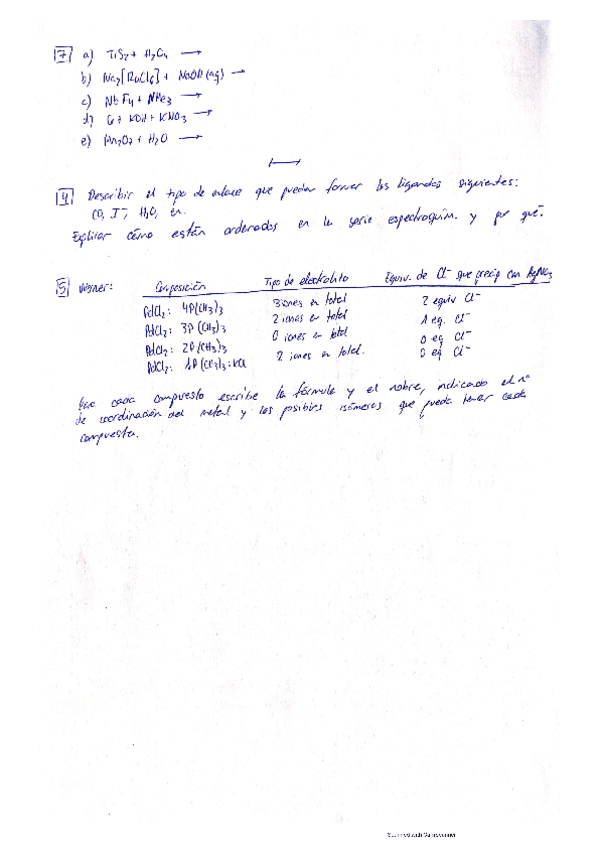 7 a) TiS2 + H2O4 →
b) Na2[RuCl6] + NaOH(aq) →
c) NbF4 + NMe3 →
d) Cr + KOH + KNO3 →
e) Mn2O7 + H2O →
4 Describir el tipo de enlace que puedan formar los ligandos siguientes:
CO, I-, H2O, en.
Explicar cómo están ordenados en la serie espectroquím. y por qué.
5 Werner: Composición Tipo de electrolito Equiv. de Cl- que precip con AgNO3
PdCl2: 4P(CH3)3 3 iones en total 2 equiv Cl-
PdCl2: 3P(CH3)3 2 iones en total 1 eq. Cl-
PdCl2: 2P(CH3)3 0 iones en total 0 eq Cl-
PdCl2: 1P(CH3)3:KCl 2 iones en total. 0 eq Cl-
Para cada compuesto escribe la fórmula y el nombre, indicando el nº
de coordinación del metal y los posibles isómeros que pueda tener cada
compuesto.